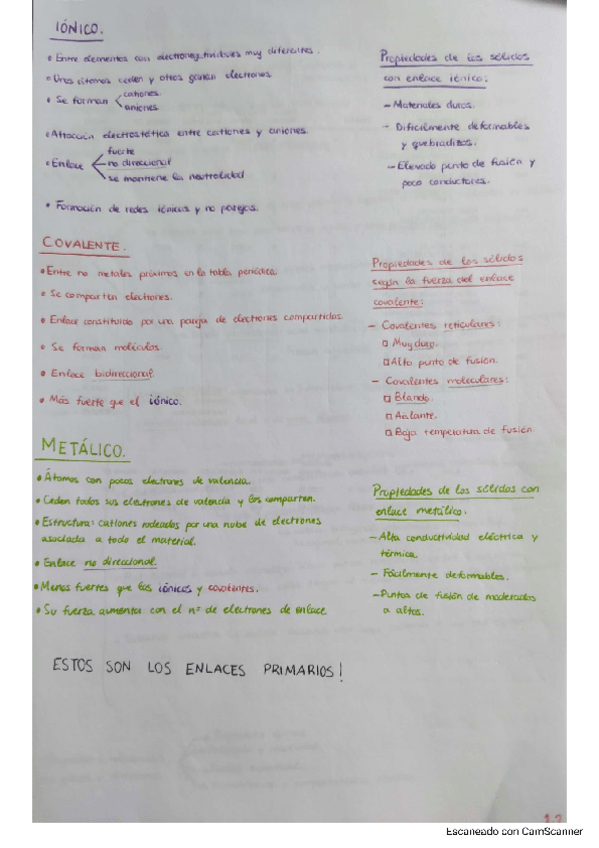 IÓNICO.
• Entre elementos con electronegatividades muy diferentes.
• Unos átomos ceden y otros ganan electrones
• Se forman < cationes.
aniones
• Atracción electrostática entre cationes y aniones.
• Enlace fuerte
no direccional
se mantiene la neutralidad
• Formación de redes iónicas y no parejas.
Propiedades de los sólidos
con enlace iónico:
- Materiales duros.
- Difícilmente deformables
y quebradizos.
- Elevado punto de fusión y
poco conductores.
COVALENTE.
• Entre no metales próximos en la tabla periódica.
• Se comparten electrones.
• Enlace constituido por una pareja de electrones compartidos.
• Se forman moléculas.
• Enlace bidireccional.
• Más fuerte que el iónico.
Propiedades de los sólidos
según la fuerza del enlace
covalente:
- Covalentes reticulares:
Muy duro.
Alto punto de fusión.
- Covalentes moleculares:
Blando.
Aislante.
Baja temperatura de fusión.
METÁLICO.
• Átomos con pocos electrones de valencia.
• Ceden todos sus electrones de valencia y los comparten.
• Estructura: cationes rodeados por una nube de electrones
asociada a todo el material.
• Enlace no direccional.
• Menos fuertes que los iónicos y covalentes.
• Su fuerza aumenta con el nº de electrones de enlace
Propiedades de los sólidos con
enlace metálico.
- Alta conductividad eléctrica y
térmica.
- Fácilmente deformables.
- Puntos de fusión de moderados
a altos.
ESTOS SON LOS ENLACES PRIMARIOS!
1.2
Escaneado con CamScanner